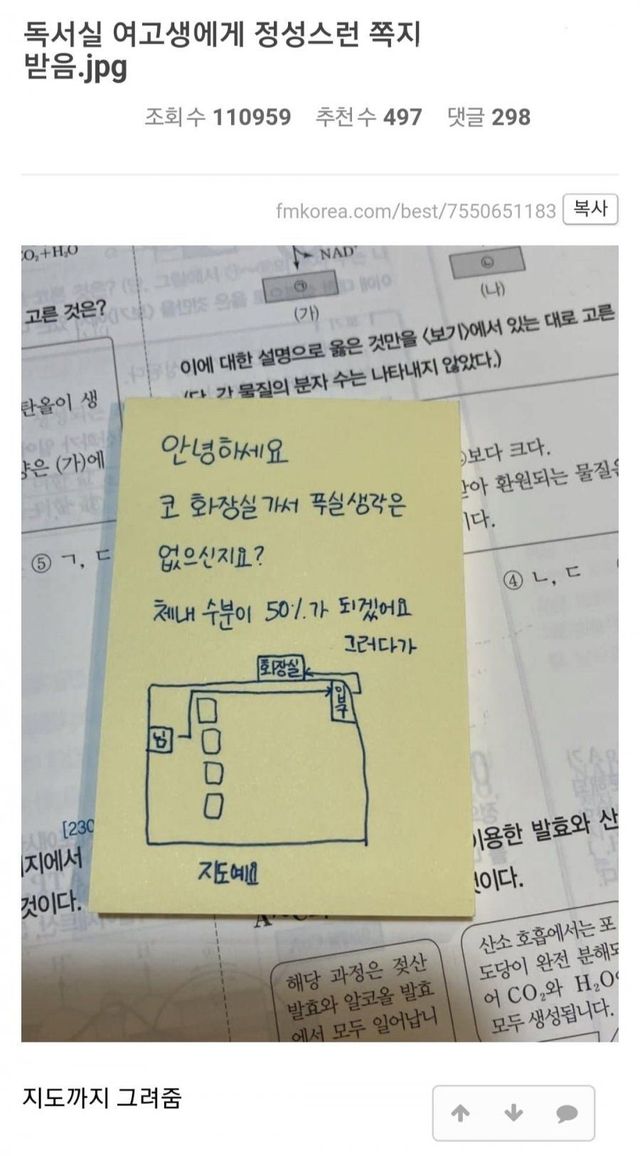 독서실 여고생에게 정성스런 쪽지
받음.jpg
조회 수 110959 추천 수 497 댓글 298
fmkorea.com/best/7550651183 복사
CO₂+H₂O
NAD⁺
㉠
㉡
고른 것은?
(가)
(나)
이에 대한 설명으로 옳은 것만을 <보기>에서 있는 대로 고른
(단, 각 물질의 분자 수는 나타내지 않았다.)
탄올이 생
은 (가)에
보다 크다.
아 환원되는 물질은
다.
⑤ ㄱ, ㄷ
④ ㄴ, ㄷ
안녕하세요
코 화장실가서 푸실생각은
없으신지요?
체내 수분이 50%가 되겠어요
그러다가
화장실
입구
님
지도예요
[230
지에서
것이다.
이용한 발효와 산
것이다.
해당 과정은 젖산
발효와 알코올 발효
에서 모두 일어납니
산소 호흡에서는 포
도당이 완전 분해되
어 CO₂와 H₂O
모두 생성됩니다.
지도까지 그려줌